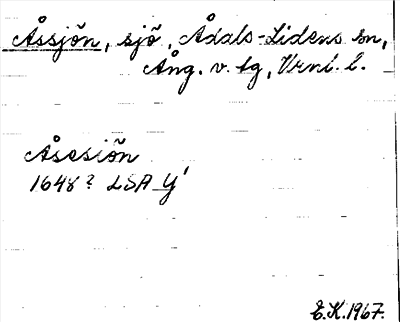 Åssjön, sjö, Ådals-Lidens sn,
Ång. v. tg, Vrnl. l.
Åsesiön
1648? LSA Y'
E.K. 1967.